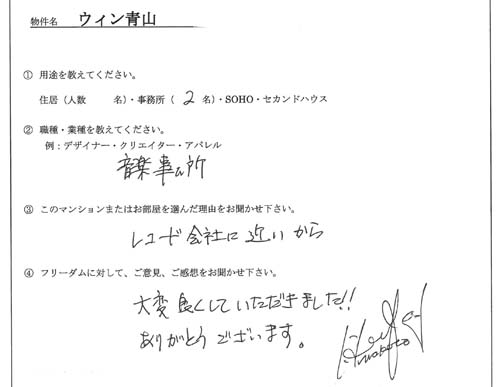 物件名 ウィン青山
① 用途を教えてください。
住居(人数 名)・事務所( 2 名)・SOHO・セカンドハウス
② 職種・業種を教えてください。
例:デザイナー・クリエイター・アパレル
音楽事ム所
③ このマンションまたはお部屋を選んだ理由をお聞かせ下さい。
レコード会社に近いから
④ フリーダムに対して、ご意見、ご感想をお聞かせ下さい。
大変良くしていただきました!!
ありがとうございます。